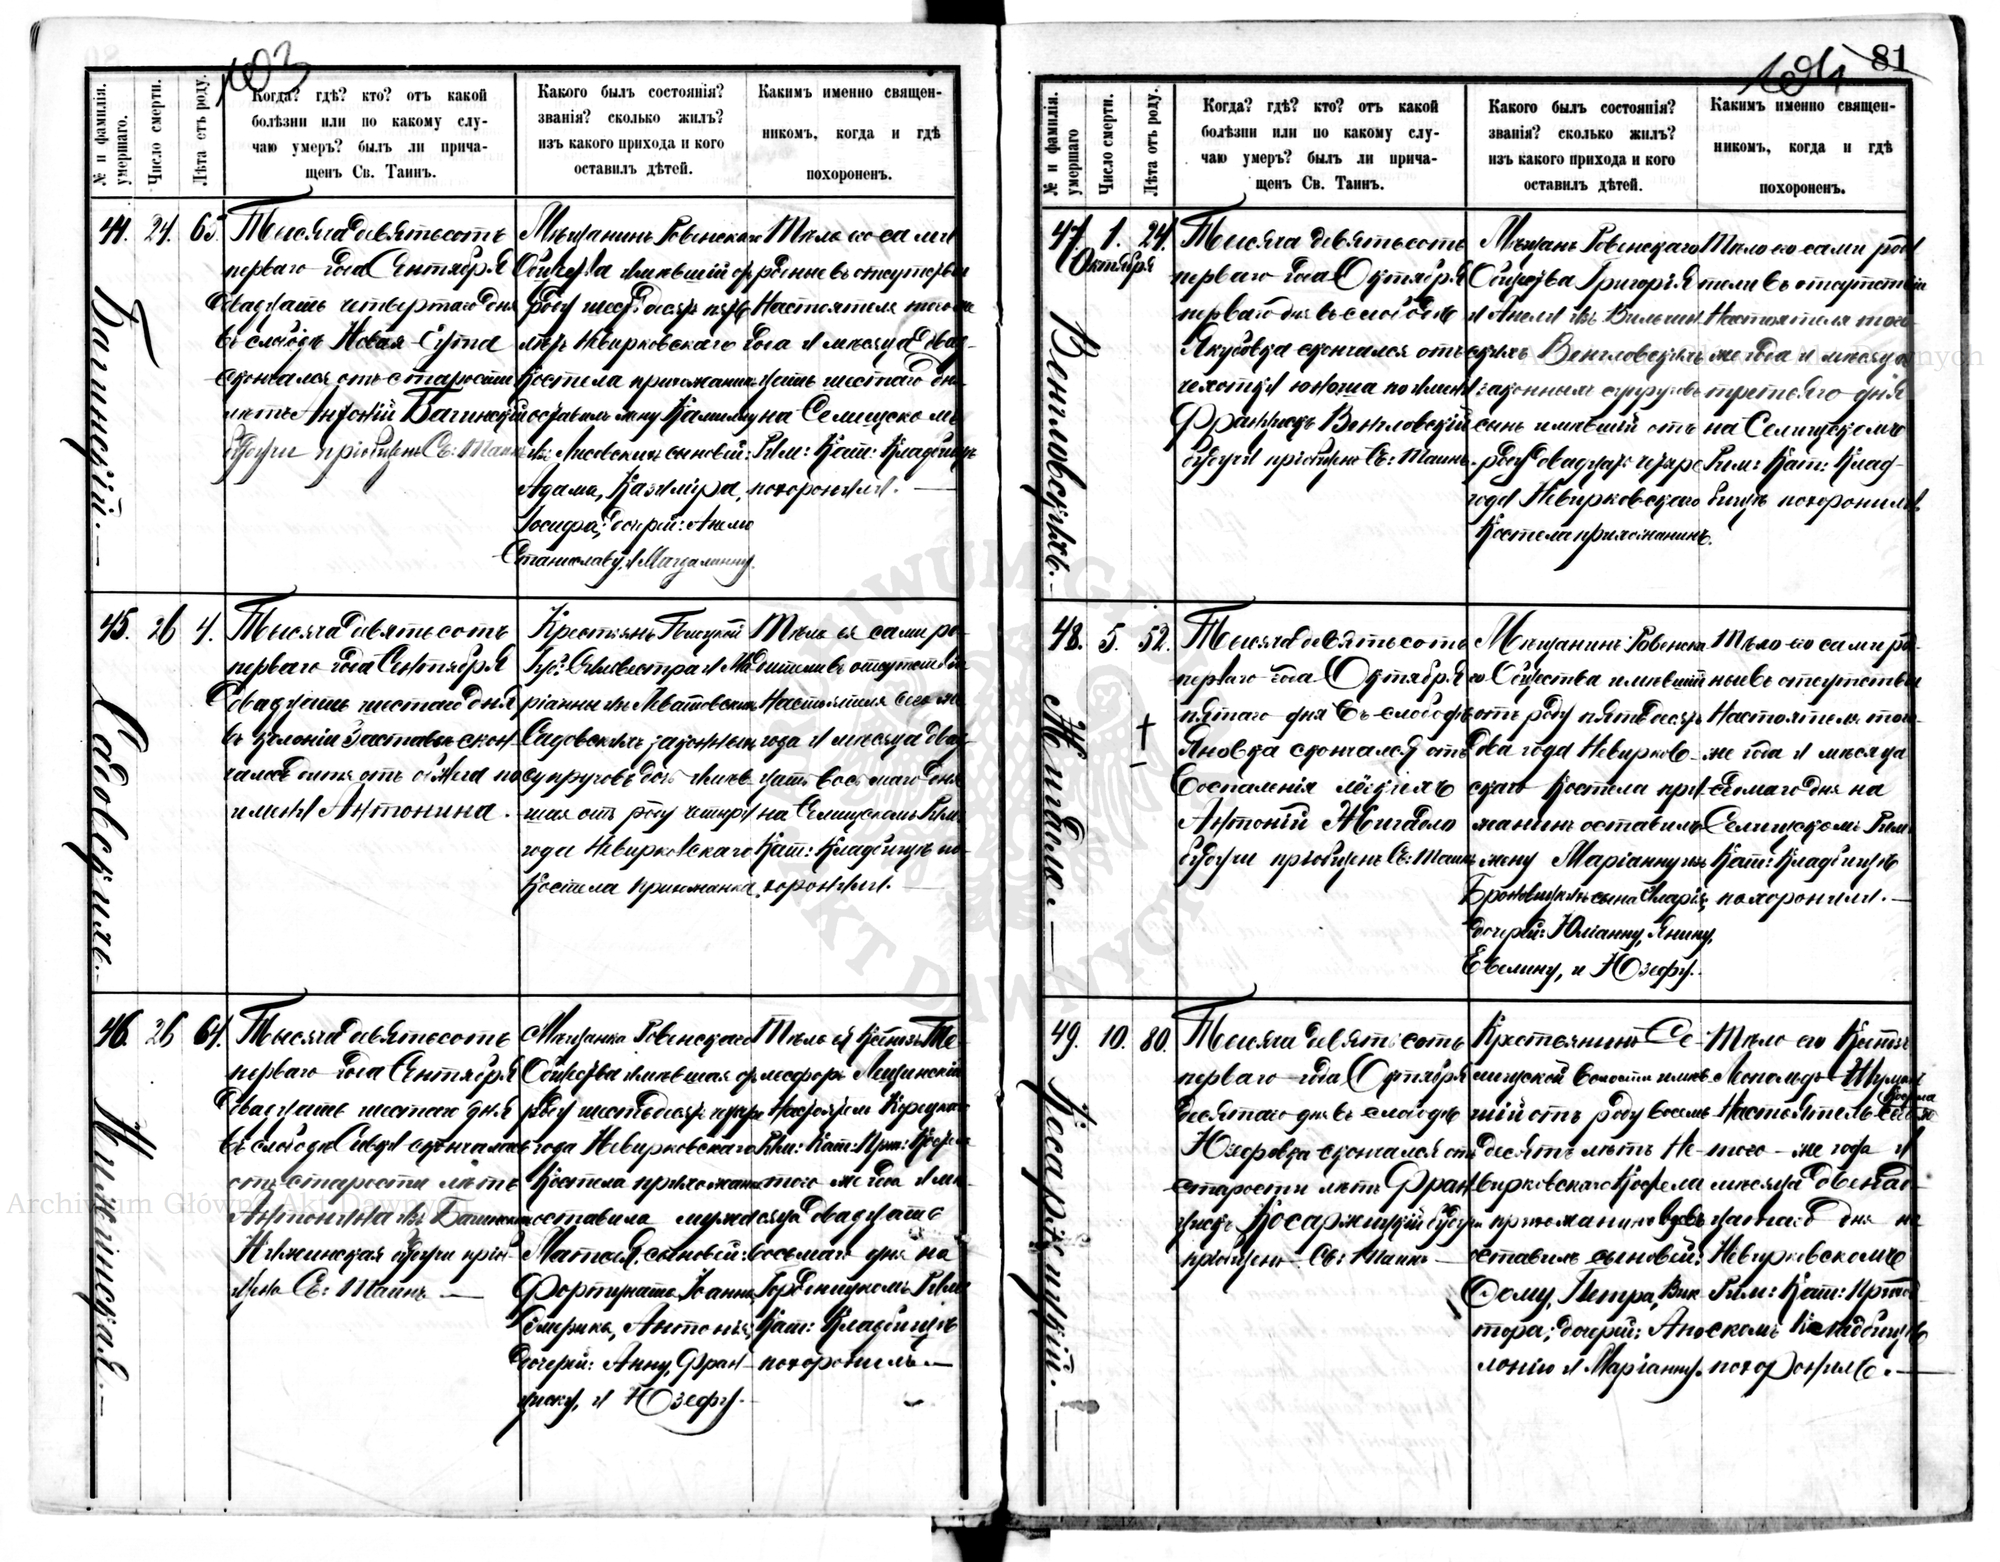 103
№ и фамилія умершаго.
Число смерти.
Лѣта отъ роду.
Когда? гдѣ? кто? отъ какой
болѣзни или по какому слу-
чаю умеръ? былъ ли прича-
щенъ Св. Таинъ.
Какого былъ состоянія?
званія? сколько жилъ?
изъ какого прихода и кого
оставилъ дѣтей.
Какимъ именно священ-
никомъ, когда и гдѣ
похороненъ.
44.
Багинскій.
24.
65.
Тысяча девятьсотъ
перваго года Сентября
двадцать четвертаго дня
въ слободѣ Новая-Сута
скончался отъ старости
лѣтъ Антоній Багинскій
будучи пріобщенъ Св: Таинъ
Мѣщанинъ Ровенскаго
Общества имѣвшій отъ
роду шестьдесятъ пять
лѣтъ Невирковскаго
Костела прихожанинъ
оставилъ жену Камилию
изъ Лисовскихъ сыновей:
Адама, Казиміра,
Іосифа, дочерей: Анелю
Станиславу, и Магдалину.
Тѣло его сами
родные въ отсутствіи
Настоятеля того-же
года и мѣсяца двад-
цать шестаго дня
на Селищскомъ
Рим: Кат: Кладбищѣ
похоронили.
45.
Садовскихъ.
26
4.
Тысяча девятьсотъ
перваго года Сентября
двадцать шестаго дня
въ колоніи Заставье скон-
чалась дитя отъ ожега по
имени Антонина.
Крестьянъ
Сильвестра и Ма-
ріанны
Садовскихъ законныхъ
супруговъ дочь имѣв-
шая отъ роду четыре
года Невирковскаго
Костела прихожанка.
Тѣло ея сами ро-
дители въ отсутствіи
Настоятеля того же
года и мѣсяца двад-
цать восьмаго дня
на Селищскомъ Рим:
Кат: Кладбищѣ по-
хоронили.
46.
Нижинская.
26
64.
Тысяча девятьсотъ
перваго года Сентября
двадцать шестаго дня
въ слободѣ скончалась
отъ старости лѣтъ
Антонина изъ Багинскихъ
Нижинская будучи пріоб-
щена Св: Таинъ
Мѣщанка Ровенскаго
Общества имѣвшая отъ
роду шестьдесятъ четыре
года Невирковскаго
Костела прихожанка
оставила мужа
Матвѣя, сыновей:
Фортуната, Іоанна,
Америка, Антонія,
дочерей: Анну, Фран-
циску, и Юзефу.
Тѣло ея Ксендзъ Те-
лесфоръ Лещинскій
Настоятель Корецкаго
Рим: Кат: Прих: Костела
того же года и мѣ-
сяца двадцать
восьмаго дня на
Рим:
Кат: Кладбищѣ
похоронилъ.
81
104
№ и фамилія умершаго
Число смерти.
Лѣта отъ роду.
Когда? гдѣ? кто? отъ какой
болѣзни или по какому слу-
чаю умеръ? былъ ли прича-
щенъ Св. Таинъ.
Какого былъ состоянія?
званія? сколько жилъ?
изъ какого прихода и кого
оставилъ дѣтей.
Какимъ именно священ-
никомъ, когда и гдѣ
похороненъ.
47.
Венгловскихъ.
1.
Октября
24.
Тысяча девятьсотъ
перваго года Октября
перваго дня въ слободѣ
Якубовка скончался отъ
чахотки юноша по имени
Францискъ Венгловскій
будучи пріобщенъ Св: Таинъ.
Мѣщанъ Ровенскаго
Общества Григорія
и Анели изъ
Венгловскихъ
законныхъ супруговъ
сынъ имѣвшій отъ
роду двадцать четыре
года Невирковскаго
Костела прихожанинъ.
Тѣло его сами роди-
тели въ отсутствіи
Настоятеля того-
же года и мѣсяца
третьяго дня
на Селищскомъ
Рим: Кат: Клад-
бищѣ похоронили
48.
Жигадло.
5.
52.
Тысяча девятьсотъ
перваго года Октября
пятаго дня въ слободѣ
Яновка скончался отъ
воспаленія лёгкихъ
Антоній Жигадло
будучи пріобщенъ Св: Таинъ
Мѣщанинъ Ровенска-
го Общества имѣвшій
отъ роду пятьдесятъ
два года Невирков-
скаго Костела прихо-
жанинъ оставилъ
жену Маріанну изъ
сына
дочерей: Юліанну, Янину,
Евелину, и Юзефу.
Тѣло его сами род-
ные въ отсутствіи
Настоятеля того-
же года и мѣсяца
седмаго дня на
Селищскомъ Рим:
Кат: Кладбищѣ
похоронили.
49.
Косаржицкій.
10.
80.
Тысяча девятьсотъ
перваго года Октября
десятаго дня въ слободѣ
Юзефовка скончался отъ
старости лѣтъ Фран-
цискъ Косаржицкій будучи
пріобщенъ Св: Таинъ
Крестьянинъ Се-
лищской волости имѣв-
шій отъ роду восемь-
десятъ лѣтъ Не-
вирковскаго Костела
прихожанинъ вдовъ
оставилъ сыновей:
Фому, Петра, Вик-
тора; дочерей: Апо-
лонію и Маріанну.
Тѣло его Ксендзъ
Леопольдъ Шуман
Настоятель сего Костела
того-же года и
мѣсяца двенад-
цатаго дня на
Невирковскомъ
Рим: Кат: Приход-
скомъ Кладбищѣ
похоронилъ.
Archiwum Główne Akt Dawnych
ARCHIWUM GŁÓWNE AKT DAWNYCH
Archiwum Główne Akt Dawnych